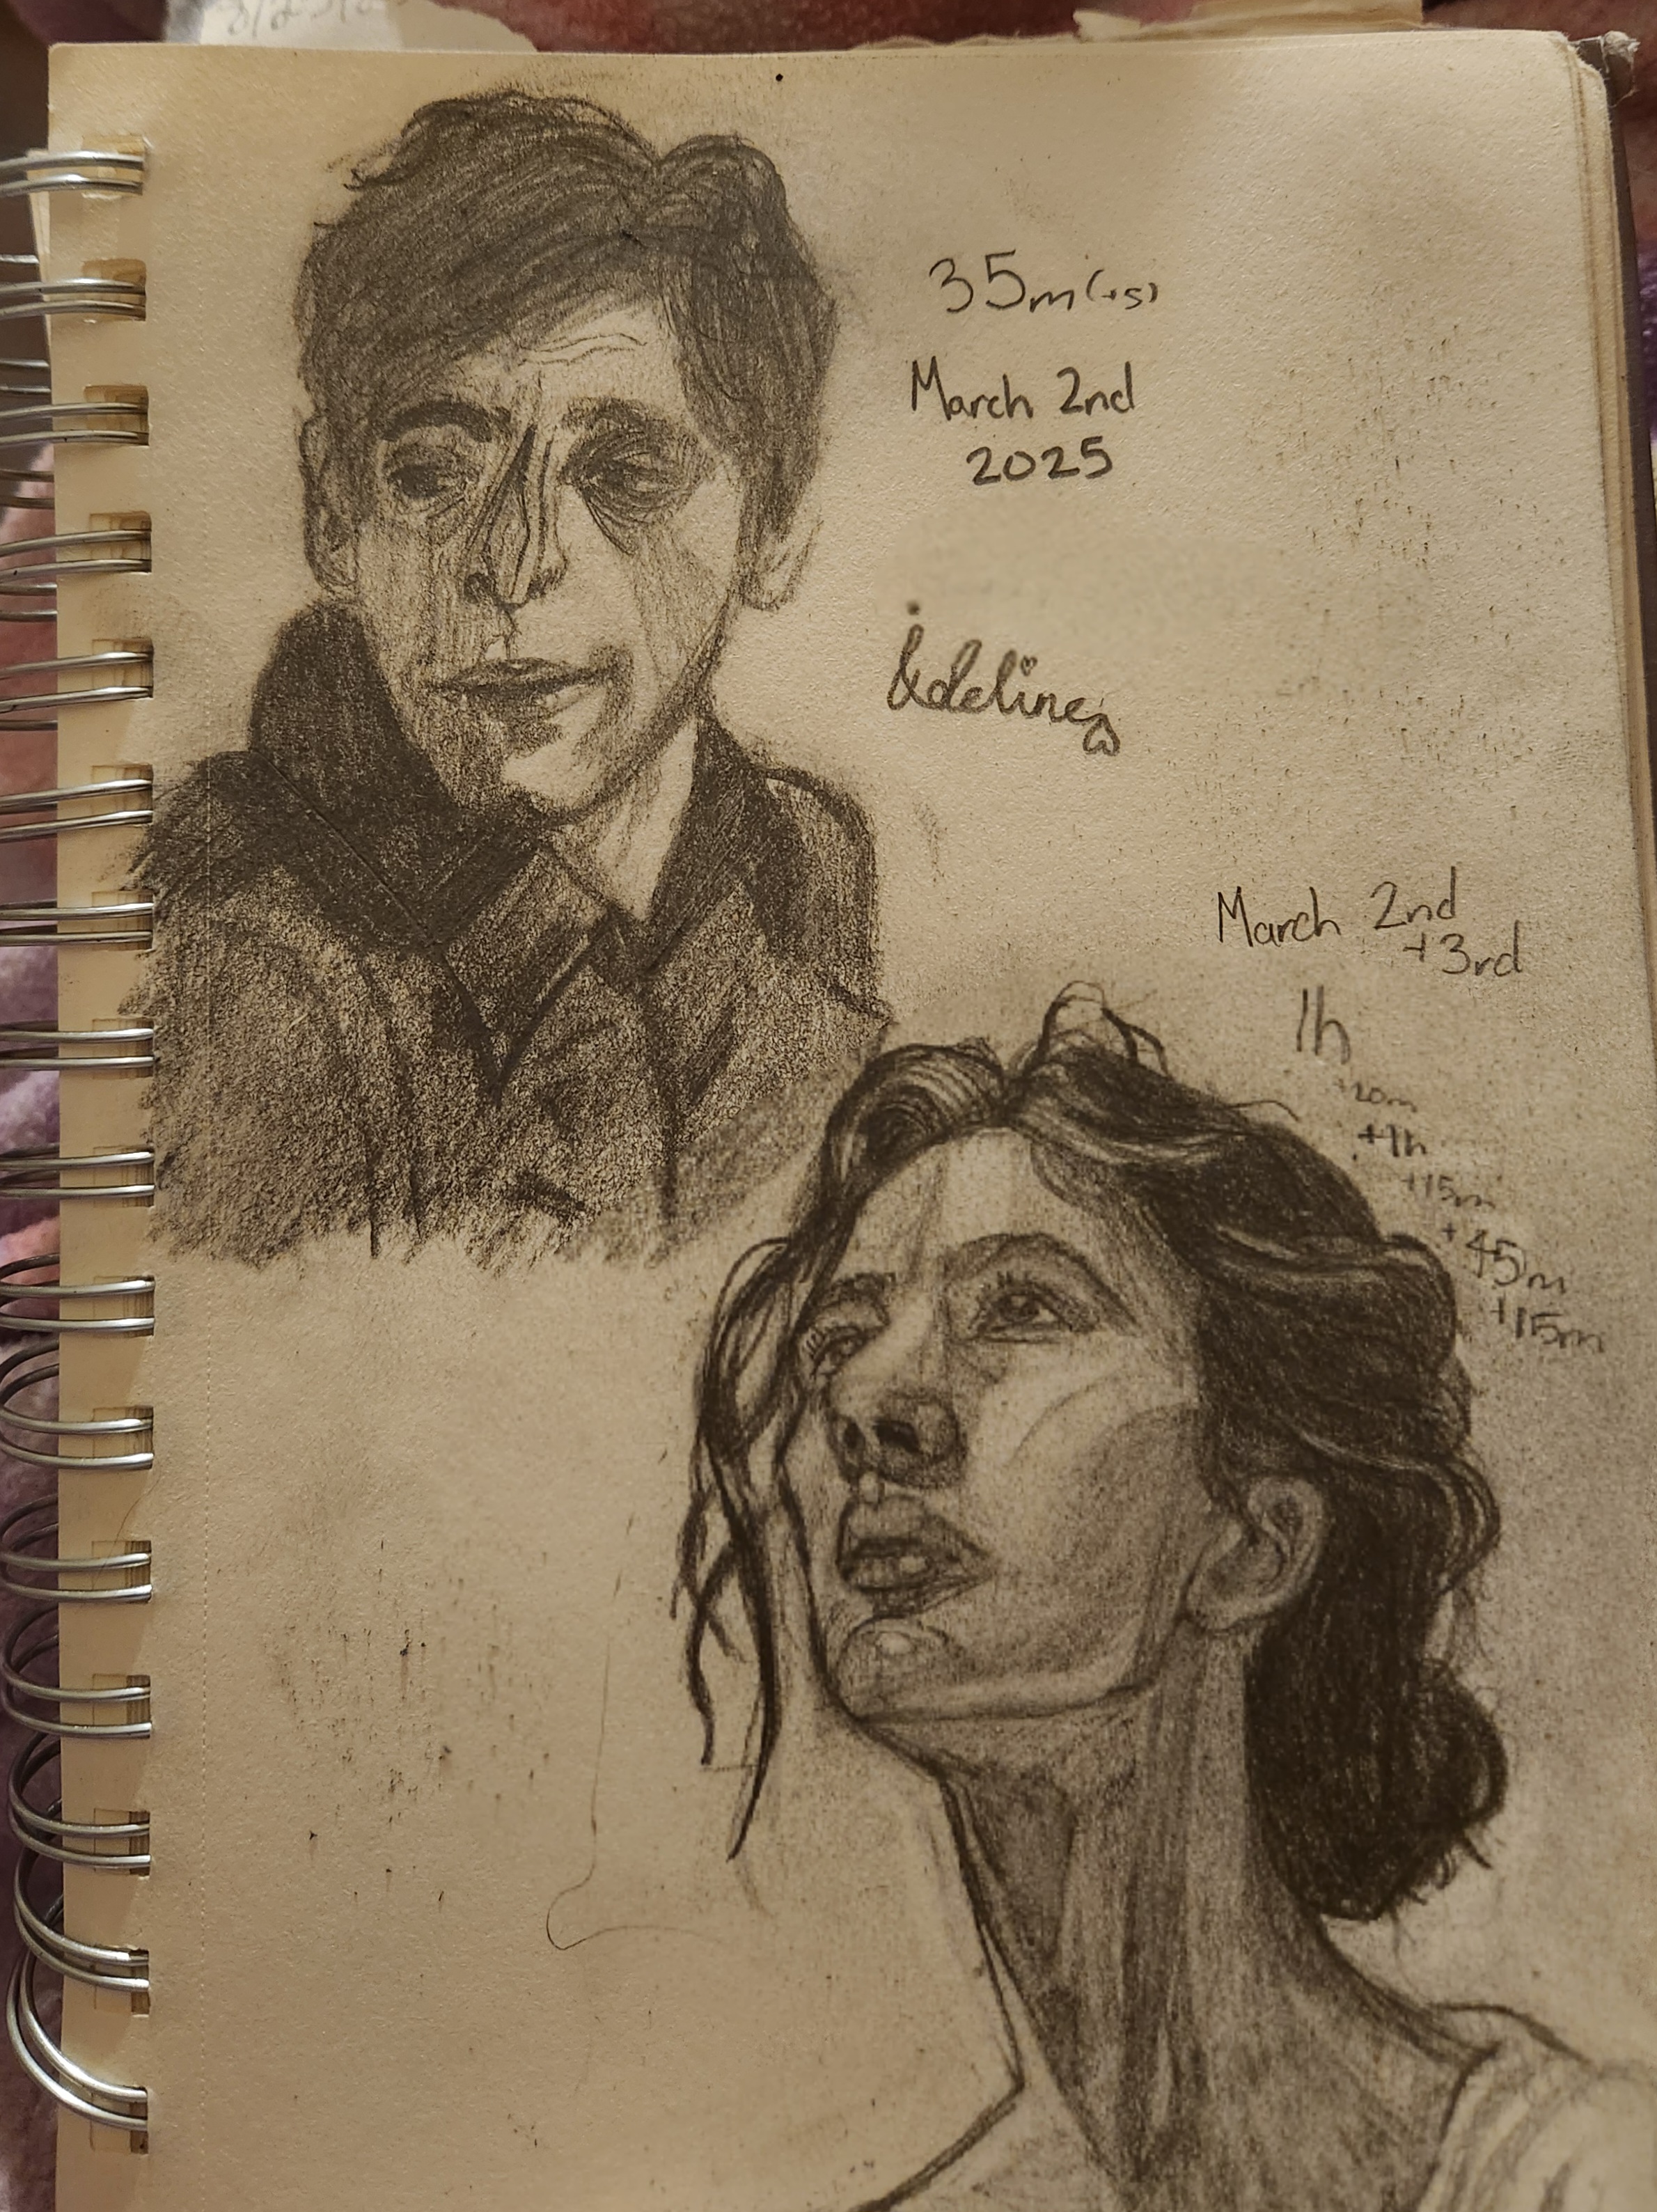 35m (+5)
March 2nd
2025
Adeline
March 2nd
+3rd
1h
+20m
+1h
+15m
+45m
+15m